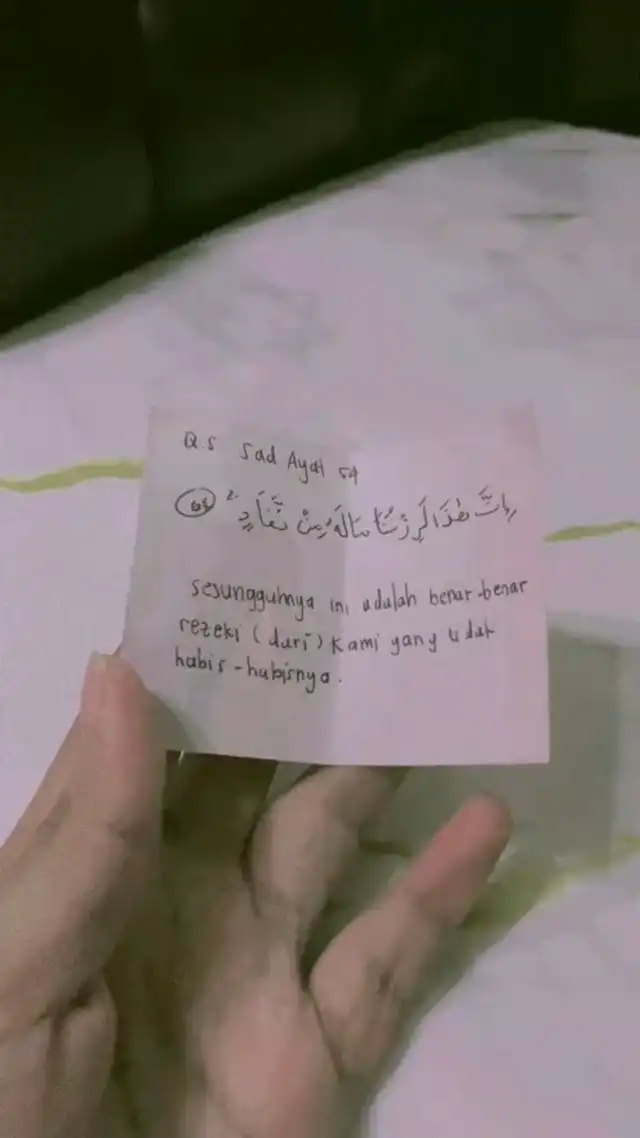 Q.S Sad Ayat 54
اِنَّ هٰذَا لَرِزْقُنَا مَا لَهٗ مِنْ نَّفَادٍۚ ٥٤
sesungguhnya ini adalah benar-benar
rezeki (dari) Kami yang tidak
habis-habisnya.